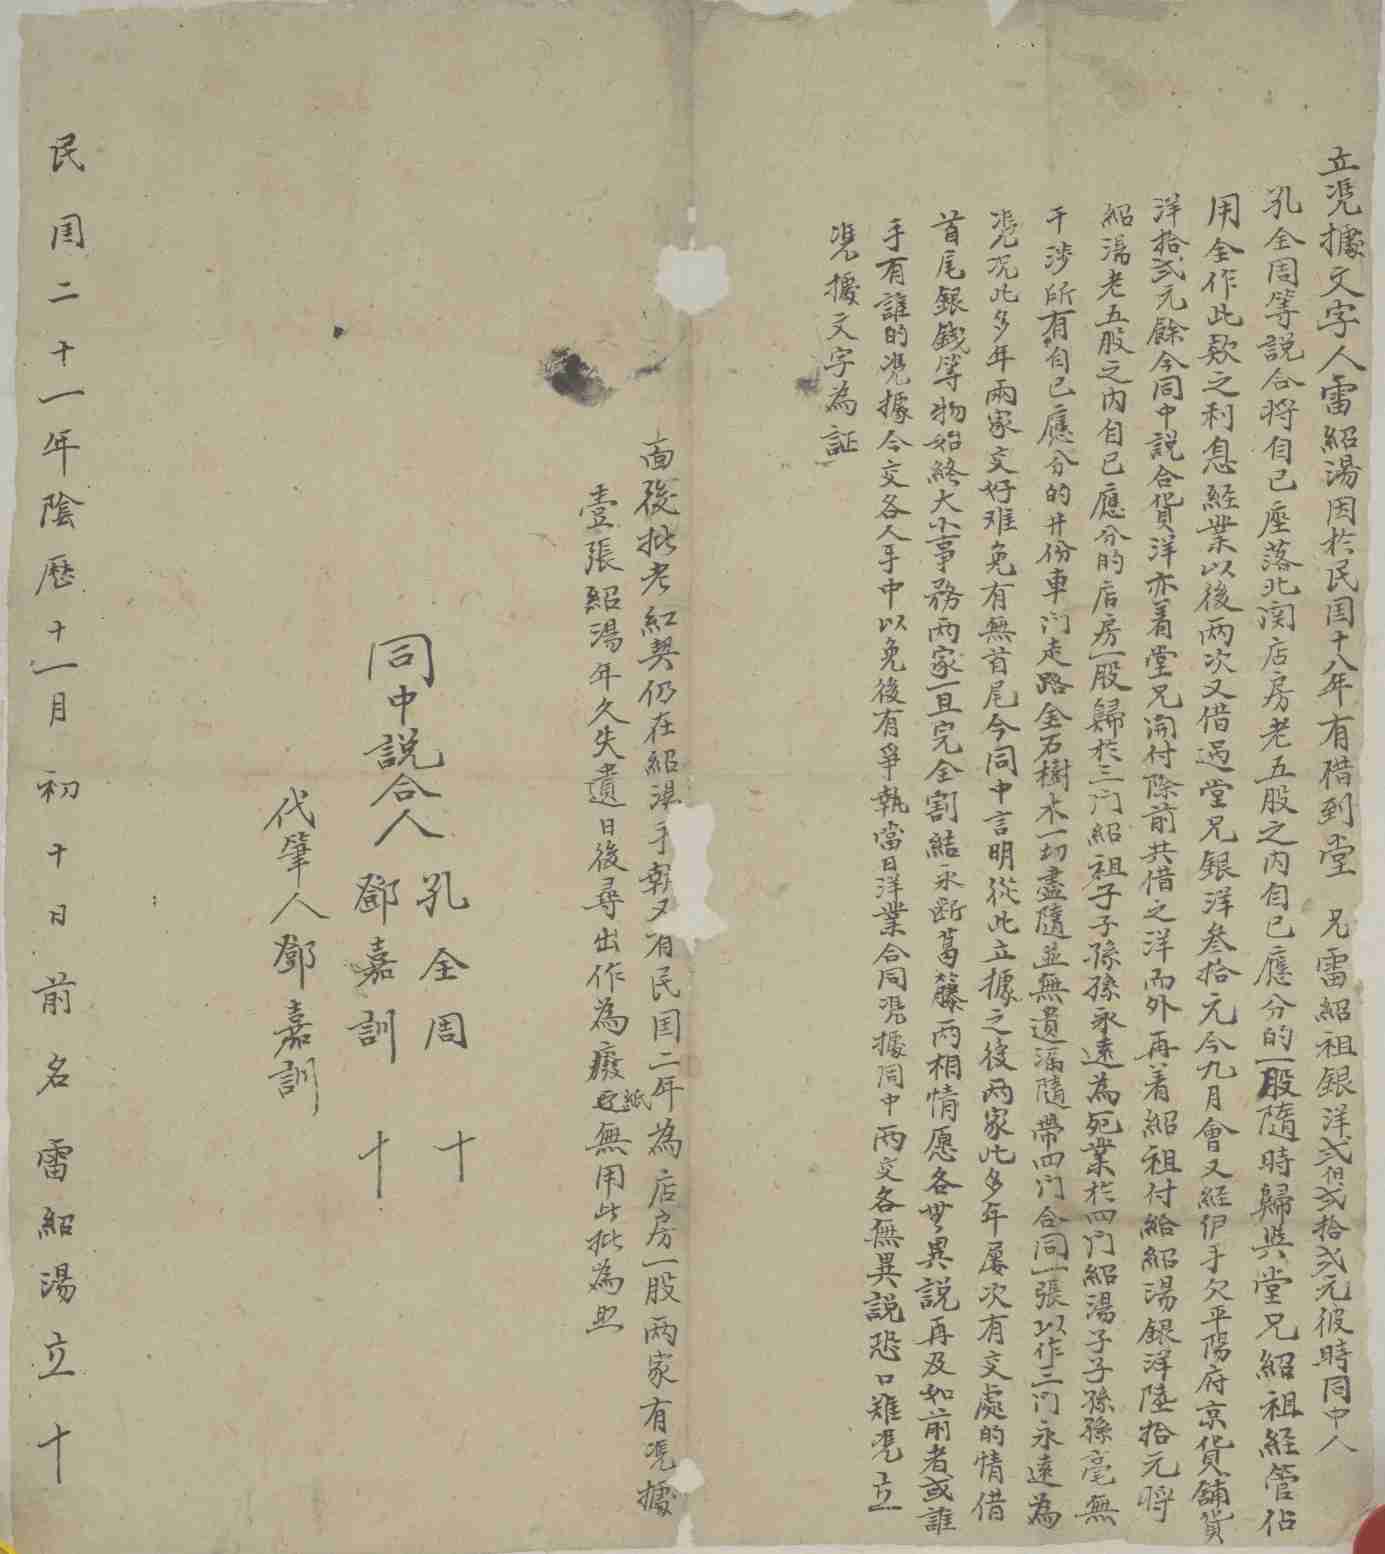 立凴據文字人雷紹湯因於民国十八年有借到堂 兄雷紹祖銀洋弍佰弍拾弍元彼時同中人
孔全周等說合將自己座落北関店房老五股之内自己應分的一股隨時歸與堂兄紹祖経管佔
用全作此欵之利息経業以後两次又借過堂兄銀洋叁拾元今九月會又経伊手欠平陽府京貨舖貨
洋拾弍元餘今同中說合貨洋亦着堂兄開付除前共借之洋而外再着紹祖付給紹湯銀洋陸拾元將
紹湯老五股之内自己應分的店房一股歸於三门紹祖子子孫孫永遠為死業於四门紹湯子子孫孫毫無
干涉所有自己應分的井份車门走路金石樹木一切盡隨並無遺漏隨帶四门合同一張以作三门永遠為
凴况此多年兩家交好难免有無首尾今同中言明從此立據之後两家此多年屢次有交處的情借
首尾銀錢等物始終大小事務两家一旦完全割結永断葛籐两相情愿各無異說再及如前者或誰
手有誰的凴據今交各人手中以免後有爭執當日洋業合同凴據同中两交各無異說恐口难凴立
凴據文字為証
面後批老紅契仍在紹湯手執又有民国二年為店房一股两家有凴據
壹張紹湯年久失遺日後尋出作為廢紙無用此批為照
同中說合人 孔全周 十
鄧嘉訓 十
代筆人鄧嘉訓
民国二十一年陰歷十一月初十日前名雷紹湯立十